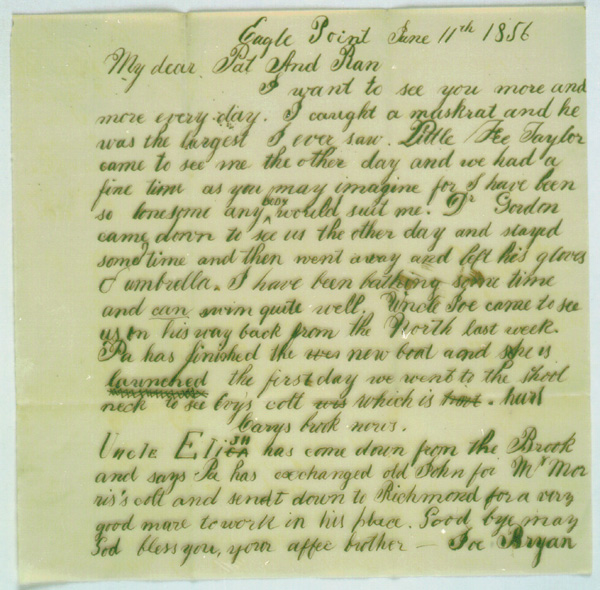 Eagle Point June 11th 1856
My dear Pat And Ran
I want to see you more and
more every day. I caught a muskrat and he
was the largest I ever saw. Little Fee Taylor
came to see me the other day and we had a
fine time as you may imagine for I have been
so lonesome any body would suit me. Dr Gordon
came down to see us the other day and stayed
some time and then went away and left his gloves
& umbrella. I have been bathing some time
and can swim quite well. Uncle Joe came to see
us on his way back from the North last week.
Pa has finished the new boat and she is
launched the first day we went to the
neck to see colt which is
Carys
Uncle has come down from the Brook
and says Pa has exchanged old John for Mr Mor
ris's colt and sendt down to Richmond for a very
good mare to work in his place. Good bye may
God bless you, your affec brother — Joe Bryan